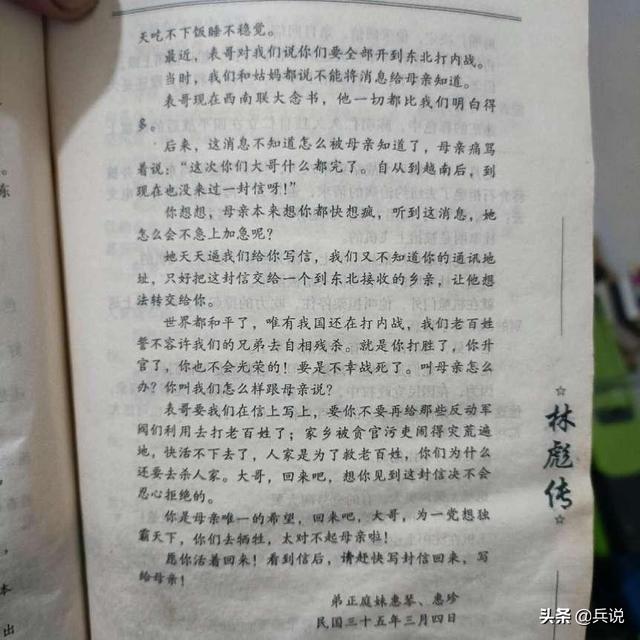 天吃不下饭睡不稳觉。
最近，表哥对我们说你们要全部开到东北打内战。
当时，我们和姑妈都说不能将消息给母亲知道。
表哥现在西南联大念书，他一切都比我们明白得
多。
后来，这消息不知道怎么被母亲知道了，母亲痛骂
着说：“这次你们大哥什么都完了。自从到越南后，到
现在也没来过一封信呀！”
你想想，母亲本来想你都快想疯，听到这消息，她
怎么会不急上加急呢？
她天天逼我们给你写信，我们又不知道你的通讯地
址，只好把这封信交给一个到东北接收的乡亲，让他想
法转交给你。
世界都和平了，唯有我国还在打内战，我们老百姓
誓不容许我们的兄弟去自相残杀。就是你打胜了，你升
官了，你也不会光荣的！要是不幸战死了。叫母亲怎么
办？你叫我们怎么样跟母亲说？
表哥要我们在信上写上，要你不要再给那些反动军
阀们利用去打老百姓了；家乡被贪官污吏闹得灾荒遍
地，快活不下去了，人家是为了救老百姓，你们为什么
还要去杀人家。大哥，回来吧，想你见到这封信决不会
忍心拒绝的。
你是母亲唯一的希望，回来吧，大哥，为一党想独
霸天下，你们去牺牲，太对不起母亲啦！
愿你活着回来！看到信后，请赶快写封信回来，写
给母亲！
弟正庭妹惠琴、惠珍
民国三十五年三月四日
☆林彪传☆
陈
。
本
出
头条 @兵说